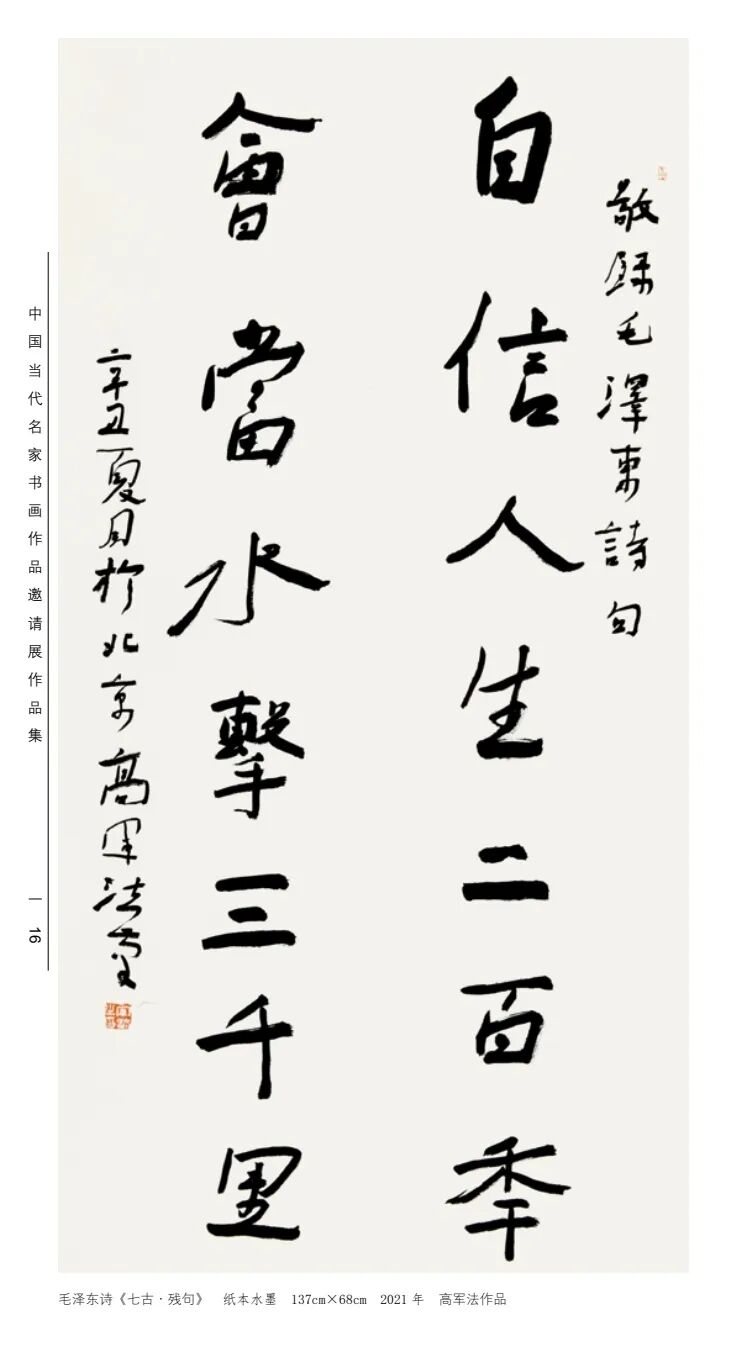 敬録毛澤東詩句
自信人生二百年
會當水擊三千里
辛丑夏月於北京高軍法書
中国当代名家书画作品邀请展作品集
16
毛泽东诗《七古·残句》 纸本水墨 137cm×68cm 2021年 高军法作品